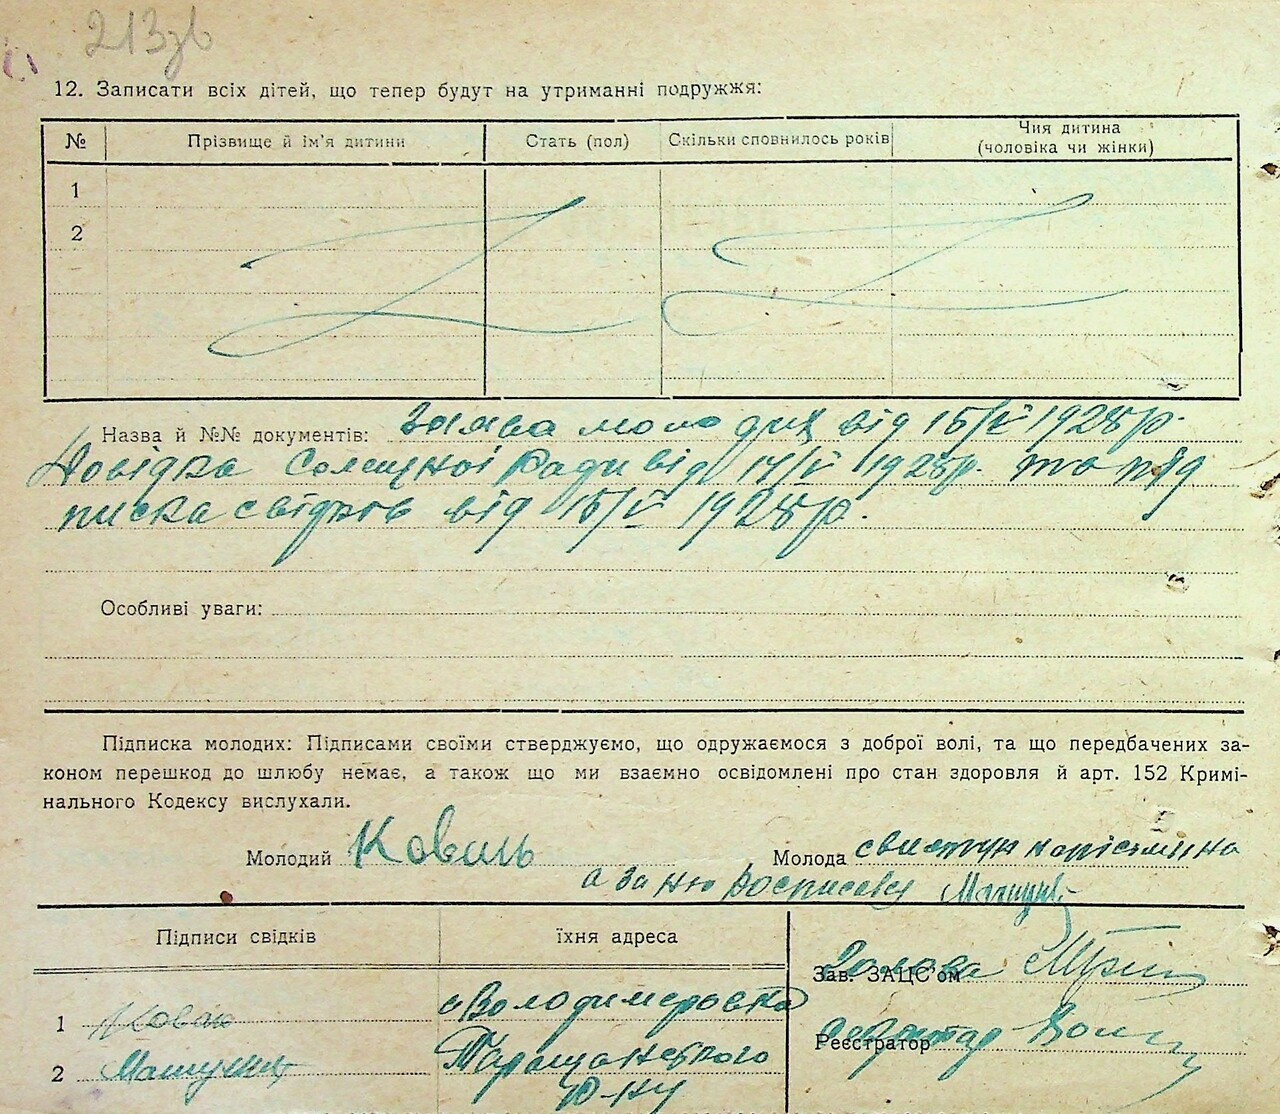 213зв
12. Записати всіх дітей, що тепер будут на утриманні подружжя:
№ Прізвище й ім'я дитини Стать (пол) Скільки сповнилось років Чия дитина
(чоловіка чи жінки)
1
2
Назва й №№ документів: Заява молодих від 15/V 1928р.
Довідка Ради від 14/V 1928р. та під
писка свідків від 15/V 1928р.
Особливі уваги:
Підписка молодих: Підписами своїми стверджуємо, що одружаємося з доброї волі, та що передбачених за-
коном перешкод до шлюбу немає, а також що ми взаємно освідомлені про стан здоровля й арт. 152 Кримі-
нального Кодексу вислухали.
Молодий Коваль Молода свистун
а за ню
Підписи свідків їхня адреса
Голова
Зав. ЗАЦС'ом
1 Коваль Володимеровка
секретар
Реєстратор
2 Таращанского
р-ну